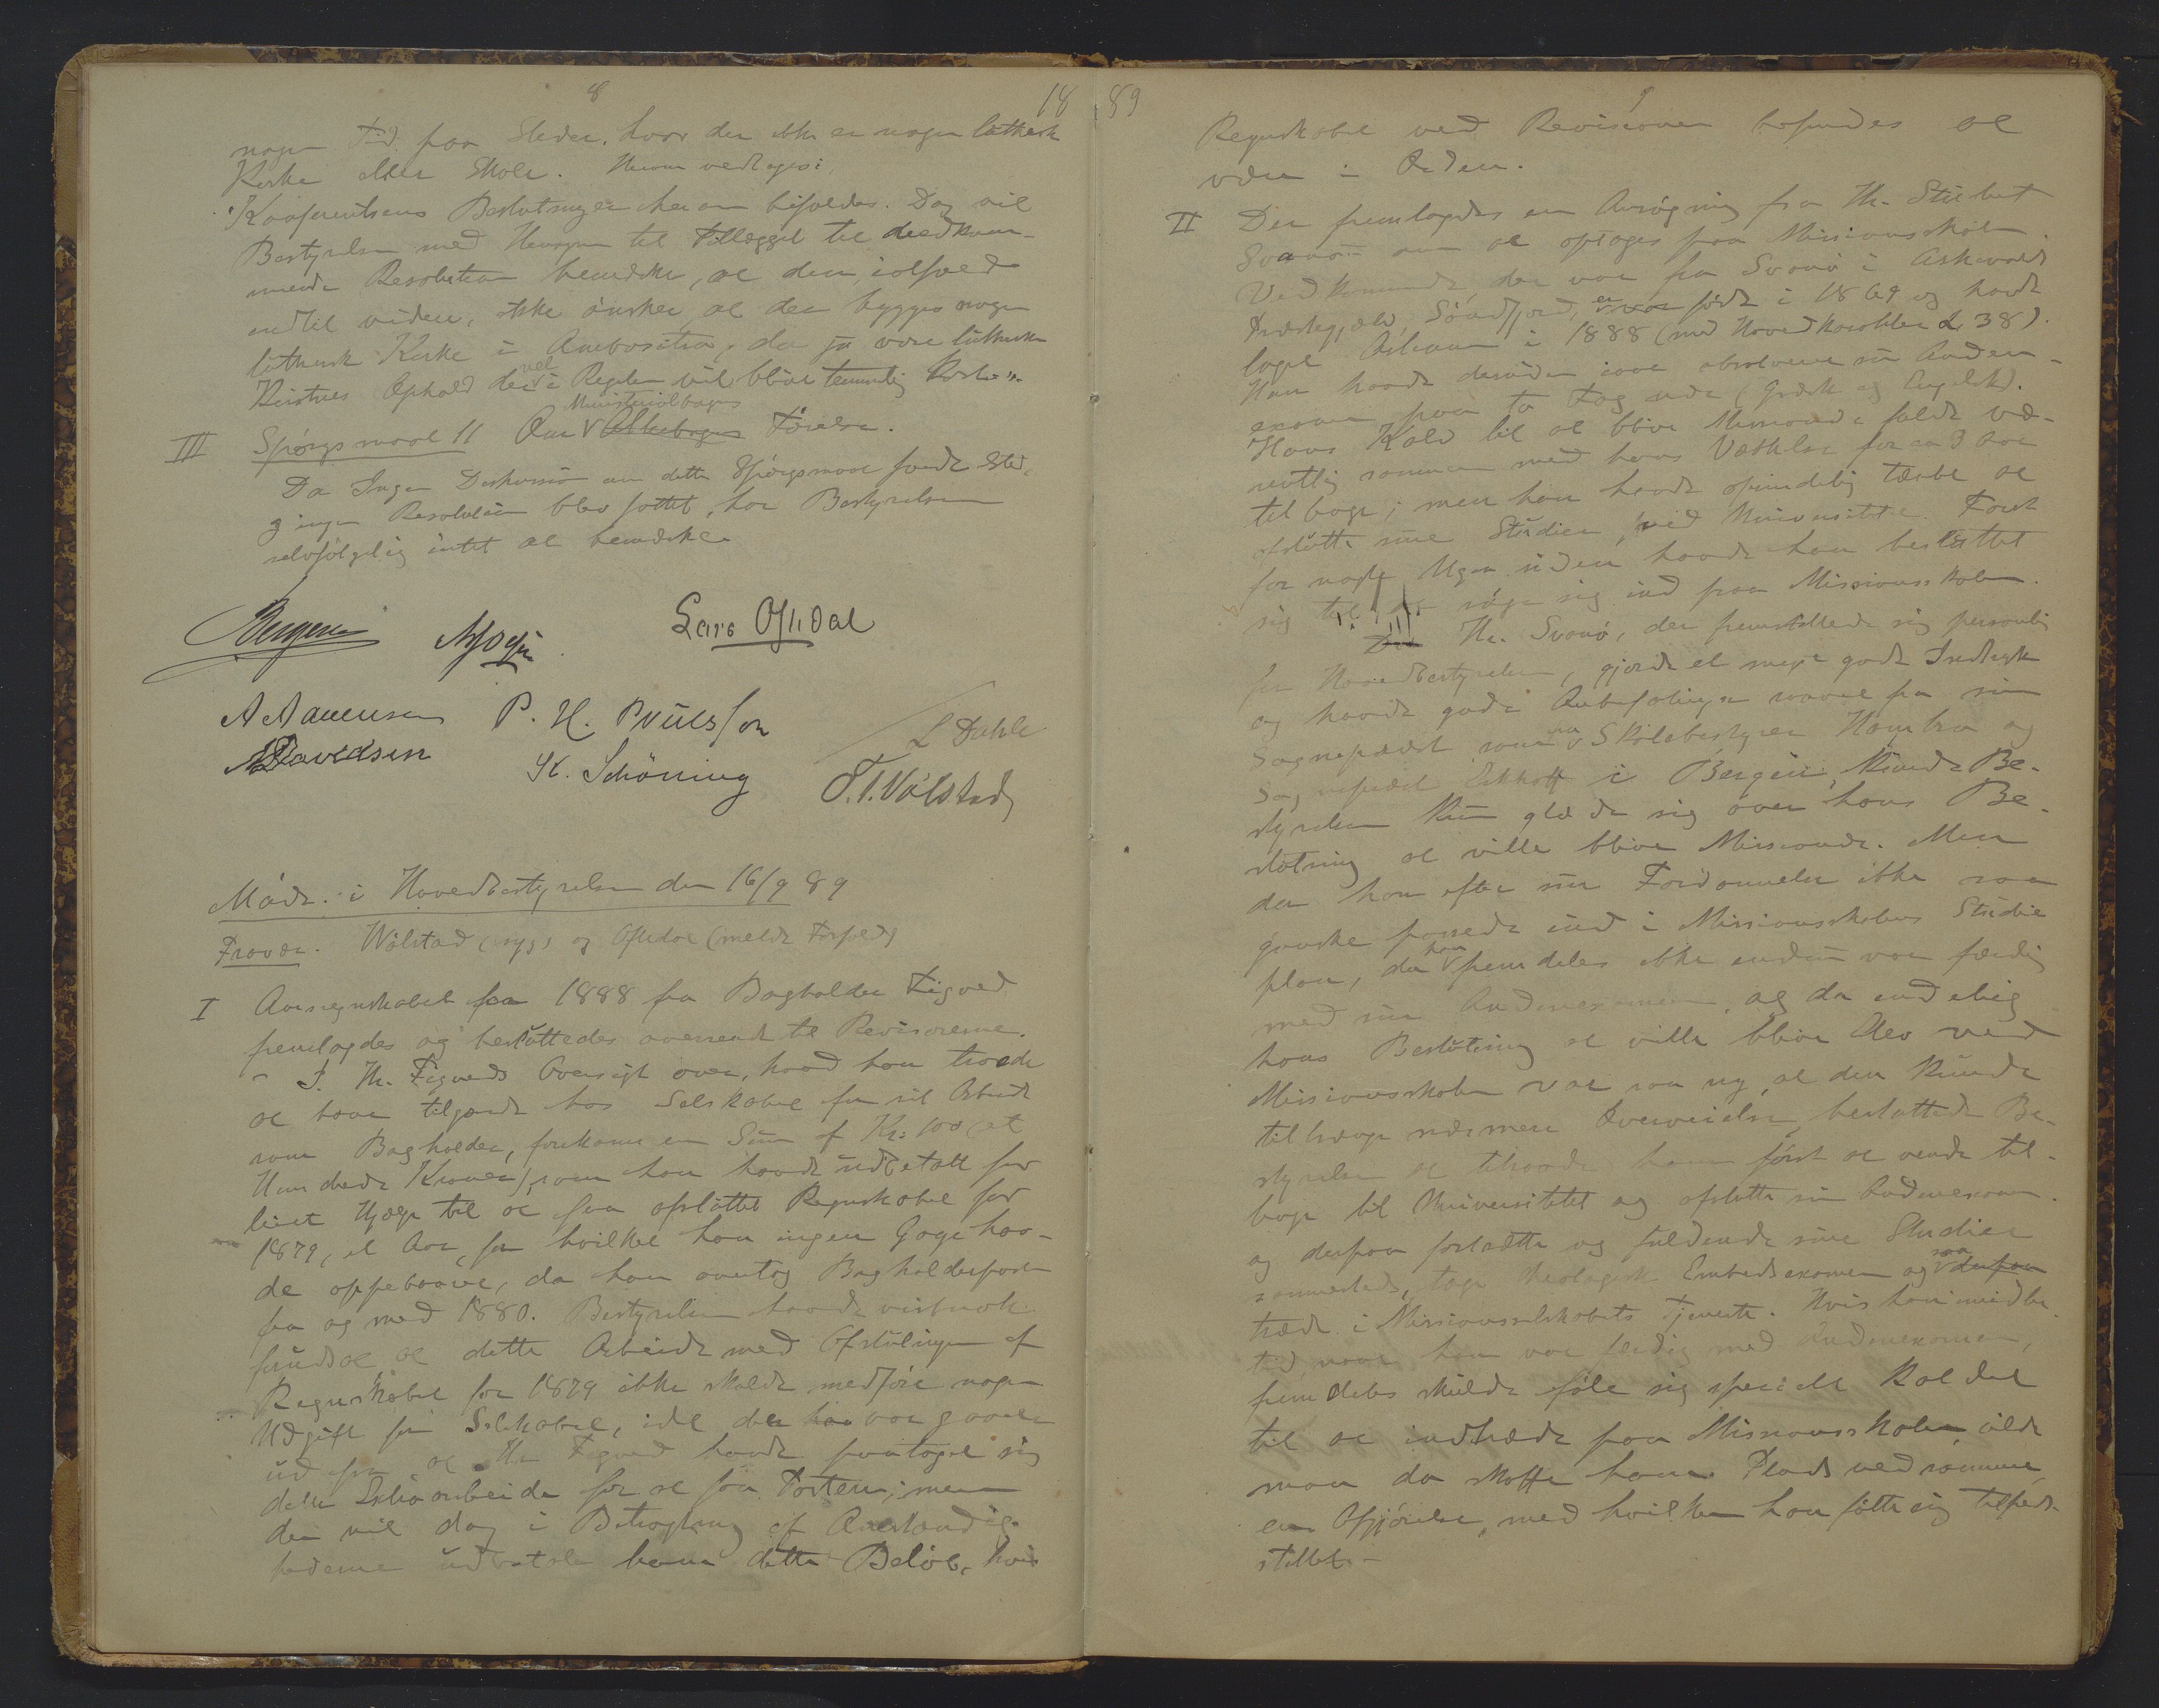 8
18
nogen Tid paa Steder, hvor der ikke er nogen luthersk
Kirke eller Skole. Herom vedtages:
"Konferentsens Beslutninger herom bifaldes. Dog vil
Bestyrelsen med Hensyn til Tillægget til vedkom-
mende Resolution bemærke, at den, ialfald
indtil videre, ikke ønsker, at der bygges nogen
luthersk Kirke i Ambositra, da jo vore lutherske
Kristnes Ophold der vel i Regelen vil blive temmelig
III Spørgsmaal 11 Om Ministerialbogens Førelse.
Da Ingen Diskussion om dette Spørgsmaal fandt Sted,
og ingen Resolution blev fattet, har Bestyrelsen
selvfølgelig intet at bemærke.
Lars Oftedal
A Aanensen P. H. Poulsson L Dahle
Davidsen K. Schøning T. T. Vølstad
Møde i Hovedbestyrelsen den 16/9 89
Fravær. Wølstad (syg) og Oftedal (meldt Forfald)
I Aarsregnskabet for 1888 fra Bogholder Figved
fremlagdes og besluttedes oversendt til Revisorerne.
I Hr. Figveds Oversigt over, hvad han troede
at have tilgode hos Selskabet for sit Arbeide
som Bogholder, forekom en Sum af Kr. 100 (et
Hundrede Kroner), som han havde udbetalt for
leiet Hjælp til at faa afsluttet Regnskabet for
1879, et Aar, for hvilket han ingen Gage hav-
de oppebaaret, da han overtog Bogholderposten
fra og med 1880. Bestyrelsen havde vistnok
forudsat, at dette Arbeide med Afslutningen af
Regnskabet for 1879 ikke skulde medføre nogen
Udgift for Selskabet, idet der var gaaet
ud fra, at Hr. Figved havde paataget sig
dette Extraarbeide for at faa Posten; men
den vil dog i Betragtning af Omstændig-
hederne udbetale ham dette Beløb, hvis
89
9
Regnskabet ved Revisionen befindes at
være i Orden.
II Der fremlagdes en Ansøgning fra Hr. Stud.
Svanø om at optages paa Missionsskolen.
Vedkommende, der var fra Svanø i Askevold
Præstegjæld, Søndfjord, er født i 1869 og havde
taget Artium i 1888 (med Hovedkarakter 2,38).
Han havde desuden absolveret sin Anden-
examen paa to Fag nær (Græsk og Engelsk).
Hans Kald til at blive Missionær faldt væ-
sentlig sammen med hans Vækkelse for ca 3 Aar
tilbage; men han havde oprindelig tænkt at
afslutte sine Studier ved Universitetet. Først
for nogle Uger siden havde han besluttet
sig til at søge sig ind paa Missionsskolen.
Hr. Svanø, der fremstillede sig personlig
for Hovedbestyrelsen, gjorde et meget godt Indtryk
og havde gode Anbefalinger saavel fra sin
Sognepræst som fra Skolebestyrer Hambro og
Sognepræst Eckhoff i Bergen. Kunde Be-
styrelsen kun glæde sig over hans Be-
slutning at ville blive Missionær. Men
da han efter sin Fordannelse ikke saa
ganske passede ind i Missionsskolens Studie
plan, da han fremdeles ikke endnu var færdig
med sin Andenexamen, og da endelig
hans Beslutning at ville blive Elev ved
Missionsskolen var saa ny, at den kunde
tiltrænge nærmere Overveielse, besluttede Be-
styrelsen at tilraade ham først at vende til-
bage til Universitetet og afslutte sin Andenexamen
og derpaa fortsætte og fuldende sine Studier
sammesteds, tage theologisk Embedsexamen og saa derpaa
træde i Missionsselskabets Tjeneste. Hvis han imidler-
tid, naar han var færdig med Andenexamen,
fremdeles skulde føle sig specielt kaldet
til at indtræde paa Missionsskolen, vilde
man da skaffe ham Plads ved samme,
en Afgjørelse, med hvilken han følte sig tilfreds-
stillet. –